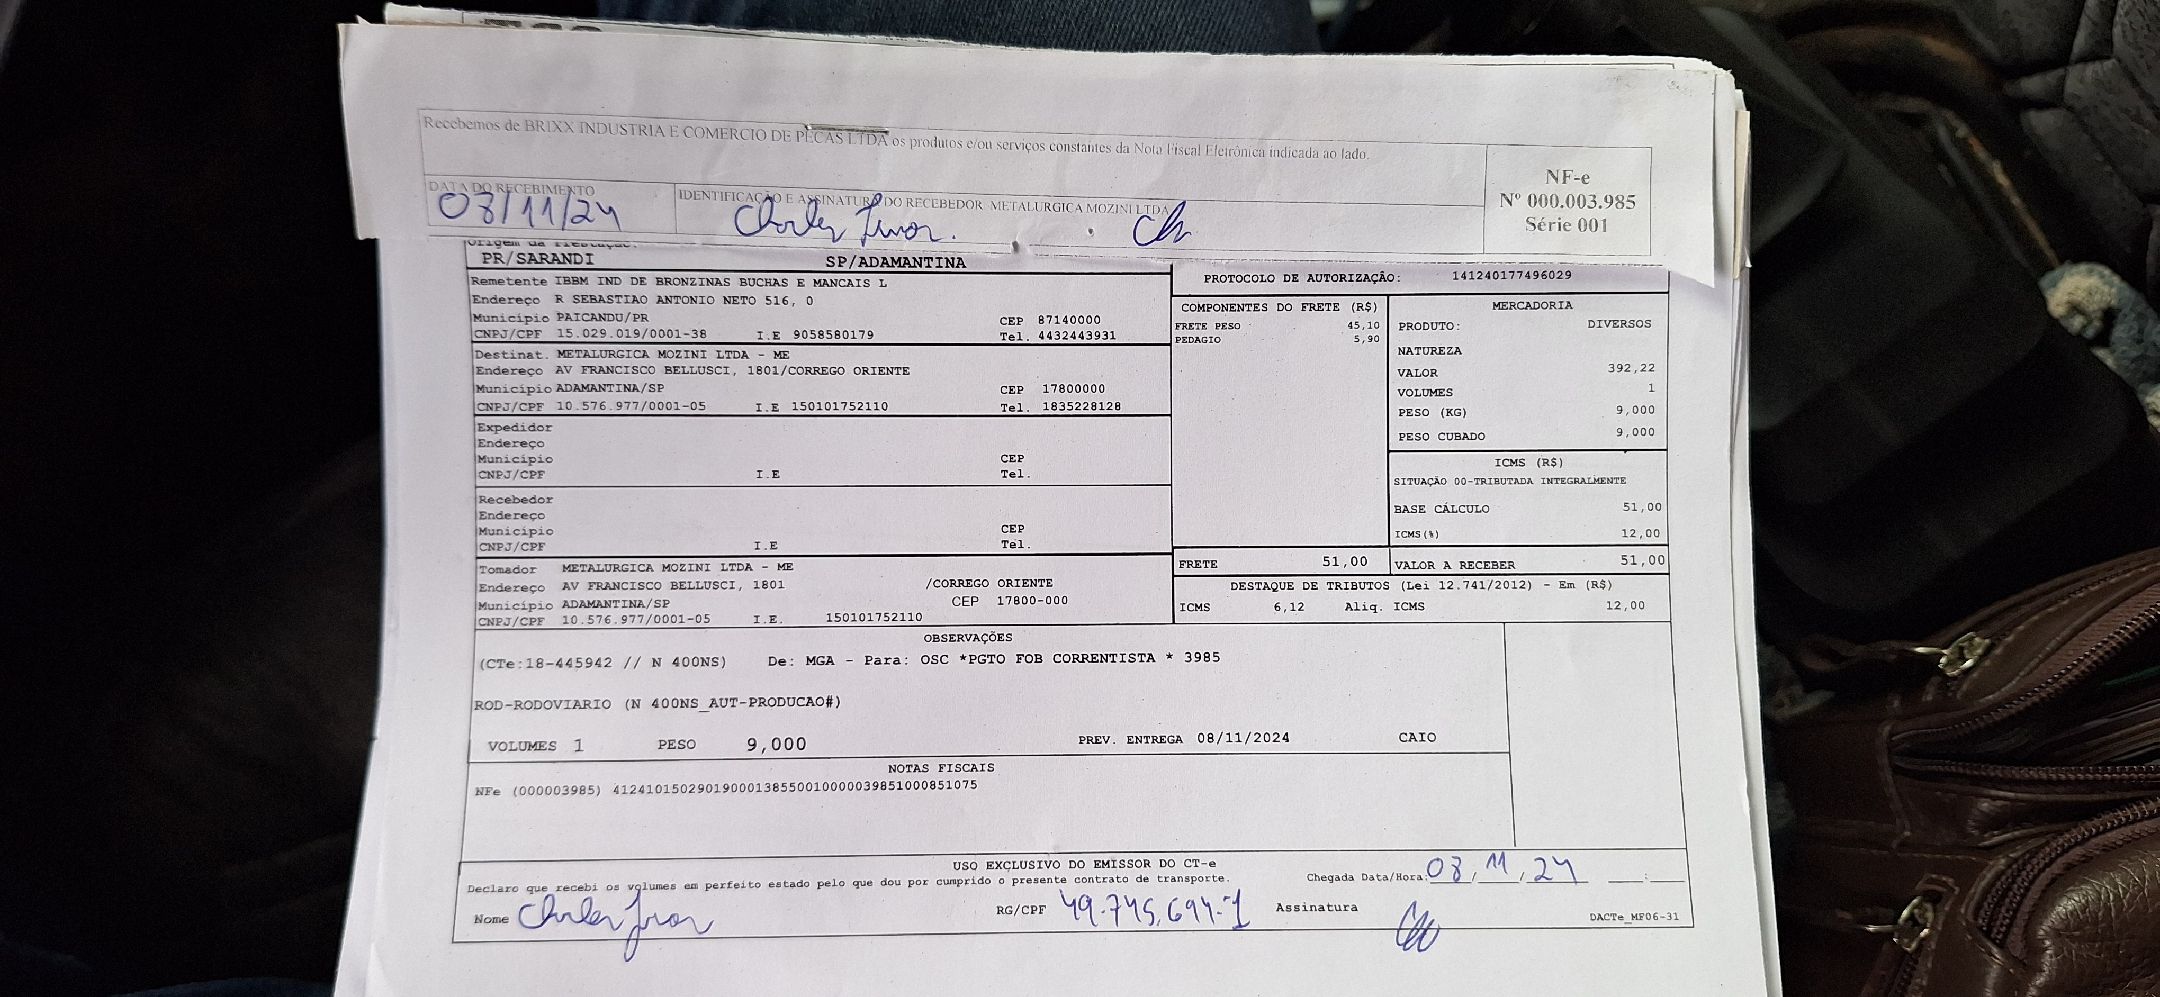 Recebemos de BRIXX INDUSTRIA E COMERCIO DE PECAS LTDA os produtos e/ou serviços constantes da Nota Fiscal Eletrônica indicada ao lado.
NF-e
Nº 000.003.985
Série 001
DATA DO RECEBIMENTO
08/11/24
IDENTIFICAÇÃO E ASSINATURA DO RECEBEDOR METALURGICA MOZINI LTDA
Origem da Prestação:
PR/SARANDI SP/ADAMANTINA
Remetente IBBM IND DE BRONZINAS BUCHAS E MANCAIS L
Endereço R SEBASTIAO ANTONIO NETO 516, 0
Município PAICANDU/PR CEP 87140000
CNPJ/CPF 15.029.019/0001-38 I.E 9058580179 Tel. 4432443931
Destinat. METALURGICA MOZINI LTDA - ME
Endereço AV FRANCISCO BELLUSCI, 1801/CORREGO ORIENTE
Município ADAMANTINA/SP CEP 17800000
CNPJ/CPF 10.576.977/0001-05 I.E 150101752110 Tel. 1835228128
Expedidor
Endereço
Município CEP
CNPJ/CPF I.E Tel.
Recebedor
Endereço
Município CEP
CNPJ/CPF I.E Tel.
Tomador METALURGICA MOZINI LTDA - ME
Endereço AV FRANCISCO BELLUSCI, 1801 /CORREGO ORIENTE
Município ADAMANTINA/SP CEP 17800-000
CNPJ/CPF 10.576.977/0001-05 I.E. 150101752110
PROTOCOLO DE AUTORIZAÇÃO: 141240177496029
COMPONENTES DO FRETE (R$)
FRETE PESO 45,10
PEDAGIO 5,90
MERCADORIA
PRODUTO: DIVERSOS
NATUREZA
VALOR 392,22
VOLUMES 1
PESO (KG) 9,000
PESO CUBADO 9,000
ICMS (R$)
SITUAÇÃO 00-TRIBUTADA INTEGRALMENTE
BASE CÁLCULO 51,00
ICMS(%) 12,00
FRETE 51,00 VALOR A RECEBER 51,00
DESTAQUE DE TRIBUTOS (Lei 12.741/2012) - Em (R$)
ICMS 6,12 Aliq. ICMS 12,00
OBSERVAÇÕES
(CTe:18-445942 // N 400NS) De: MGA - Para: OSC *PGTO FOB CORRENTISTA * 3985
ROD-RODOVIARIO (N 400NS_AUT-PRODUCAO#)
VOLUMES 1 PESO 9,000 PREV. ENTREGA 08/11/2024 CAIO
NOTAS FISCAIS
NFe (000003985) 41241015029019000138550010000039851000851075
USO EXCLUSIVO DO EMISSOR DO CT-e
Declaro que recebi os volumes em perfeito estado pelo que dou por cumprido o presente contrato de transporte. Chegada Data/Hora: 08, 11, 24 :
Nome RG/CPF 49.745.694-1 Assinatura
DACTe_MF06-31